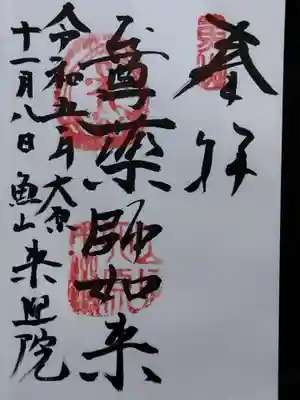 奉拝
尊薬師如来
令和五年
十一月八日
大原
魚山来迎院